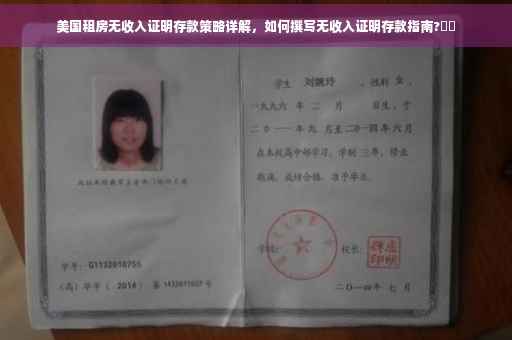 美国租房无收入证明存款策略详解，如何撰写无收入证明存款指南?
学生 刘婉玲 ，性别 女 ，
一九九六 年 二 月 日生，于
二〇一一年九 月至二〇一四年 六 月
在本校高中部学习，学制 三年，修业
期满，成绩合格，准予毕业。
学校： 校长：
学号： G1132010755
(高) 毕字 ( 2014 ) 第 1432011607 号
二〇一四年 七 月